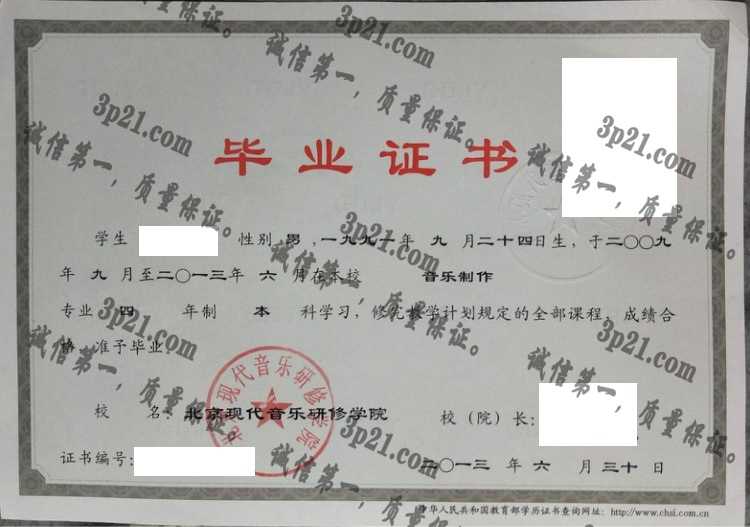 毕业证书
学生 性别 男 ,一九九一年 九 月二十四日生，于二〇〇九
年 九 月至二〇一三年 六 月在本校 音乐制作
专业 四 年制 本 科学习，修完教学计划规定的全部课程，成绩合
格，准予毕业。
校 名：北京现代音乐研修学院 校（院）长：
北京现代音乐研修学院
证书编号： 二〇一三 年 六 月 三十 日
中华人民共和国教育部学历证书查询网址：http://www.chsi.com.cn
3p21.com
诚信第一，质量保证。
3p21.com
诚信第一，质量保证。
3p21.com
诚信第一，质量保证。
3p21.com
诚信第一，质量保证。
3p21.com
诚信第一，质量保证。
3p21.com
诚信第一，质量保证。
3p21.com
诚信第一，质量保证。
3p21.com
诚信第一，质量保证。